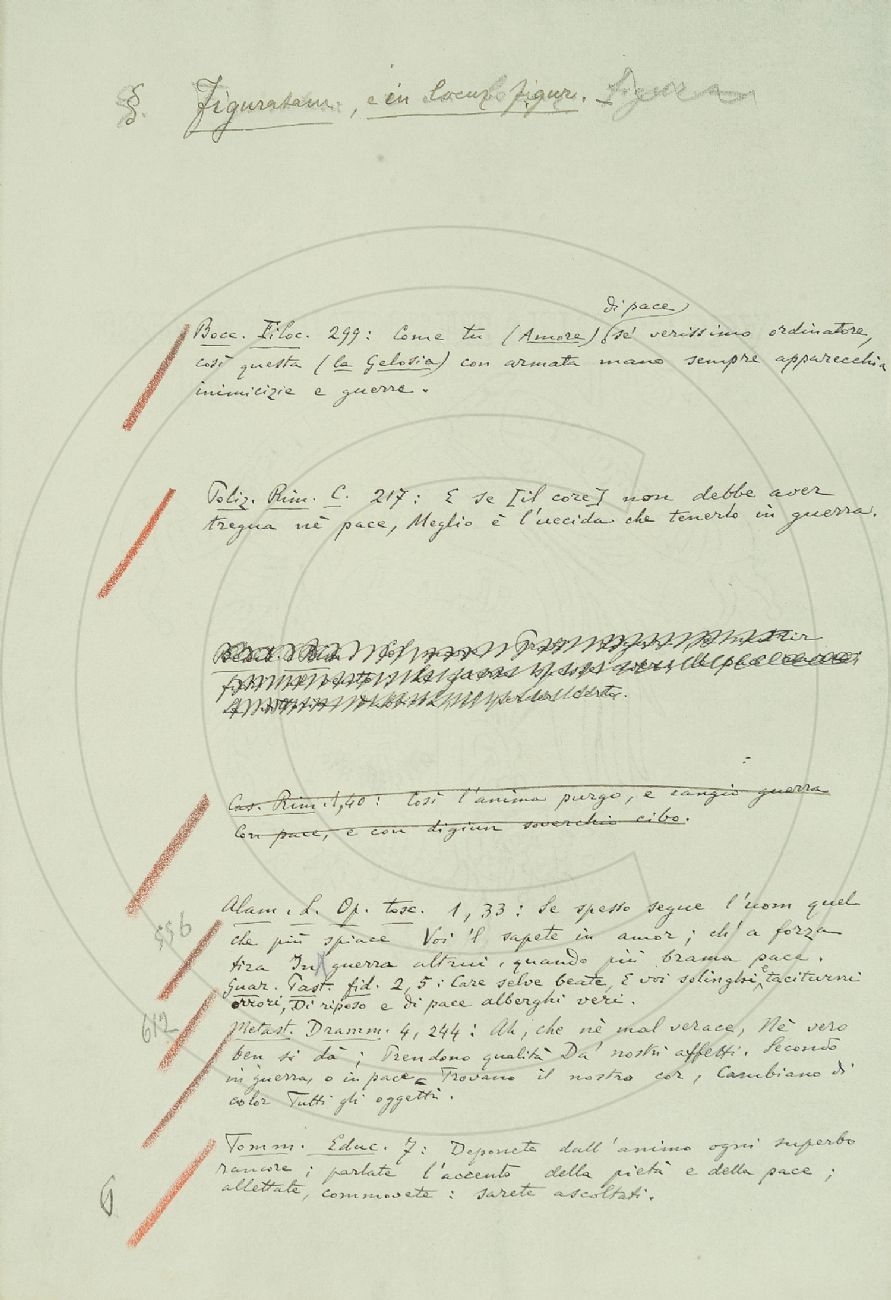 §. Figuratam., e in locuz. figur. – Figura
di pace
Bocc. Filoc. 299: Come tu (Amore) (se' verissimo ordinatore,
così questa (la Gelosia) con armata mano sempre apparecchia
inimicizie e guerre.
Poliz. Rim. C. 217: E se [il core] non debbe aver
tregua nè pace, Meglio è l'uccida che tenerlo in guerra.
Cas. Rim. 1, 40: Così l'anima purgo, e cangio guerra
Con pace, e con digiun soverchio cibo.
Alam. L. Op. tosc. 1, 33: Se spesso segue l'uom quel
che più spiace Voi 'l sapete in amor; ch'a forza
556
tira In guerra altrui, quando più brama pace.
Guar. Past. fid. 2, 5: Care selve beate, E voi solinghi e taciturni
orrori, Di riposo e di pace alberghi veri.
612
Metast. Dramm. 4, 244: Ah, che nè mal verace, Nè vero
ben si dà; Prendono qualità Da' nostri affetti. Secondo
in guerra, o in pace Trovano il nostro cor, Cambiano di
color Tutti gli oggetti.
Tomm. Educ. 7: Deponete dall'animo ogni superbo
rancore; parlate l'accento della pietà e della pace;
allettate, commovete: sarete ascoltati.